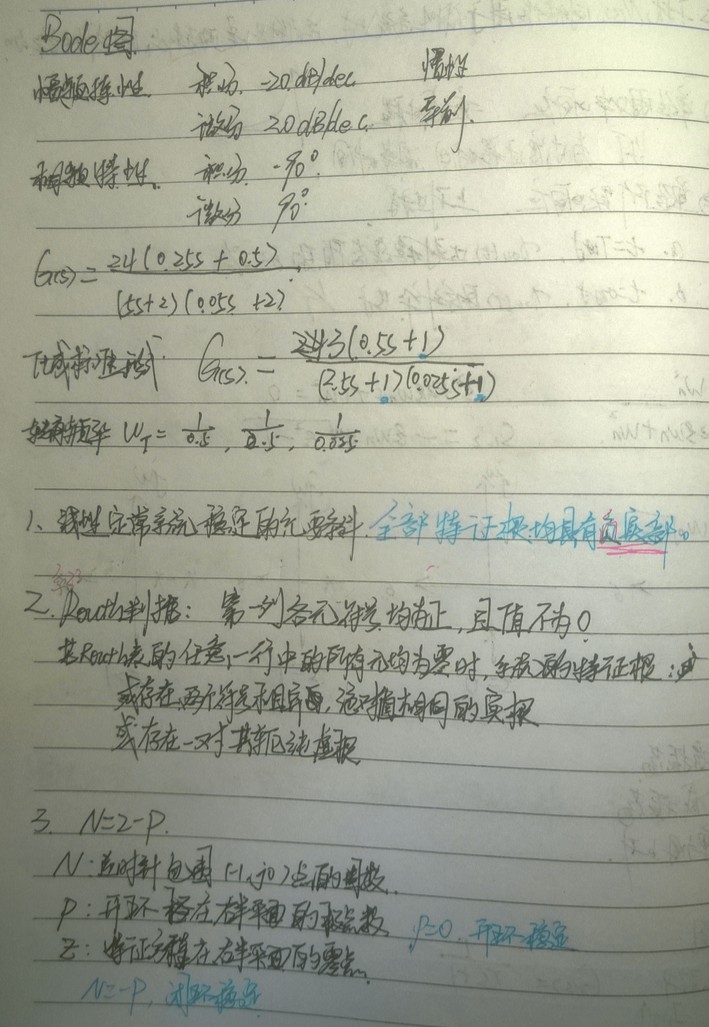 Bode图
幅频特性 积分 -20dB/dec 惯性
微分 20dB/dec
相频特性 积分 -90°
微分 90°
G(s)=24(0.25s+0.5)/(5s+2)(0.05s+2)
化成标准形式 G(s)=3(0.5s+1)/(2.5s+1)(0.025s+1)
转折频率 W_T=1/0.5, 1/2.5, 1/0.025
1、线性定常系统稳定的充要条件 全部特证根均具有负实部。
2. Routh判据:第一列各元符号均为正,且值不为0
若Routh表的任意一行中的所有元均为零时,系统的特证根:
或存在两个符号相异,绝对值相同的实根
或存在一对共轭纯虚根
3. N=Z-P.
N:顺时针包围(-1,j0)点的周数.
P:开环极在右半平面的极点数 P=0 开环稳定
Z:特证方程在右半平面的零点.
N=-P, 闭环稳定